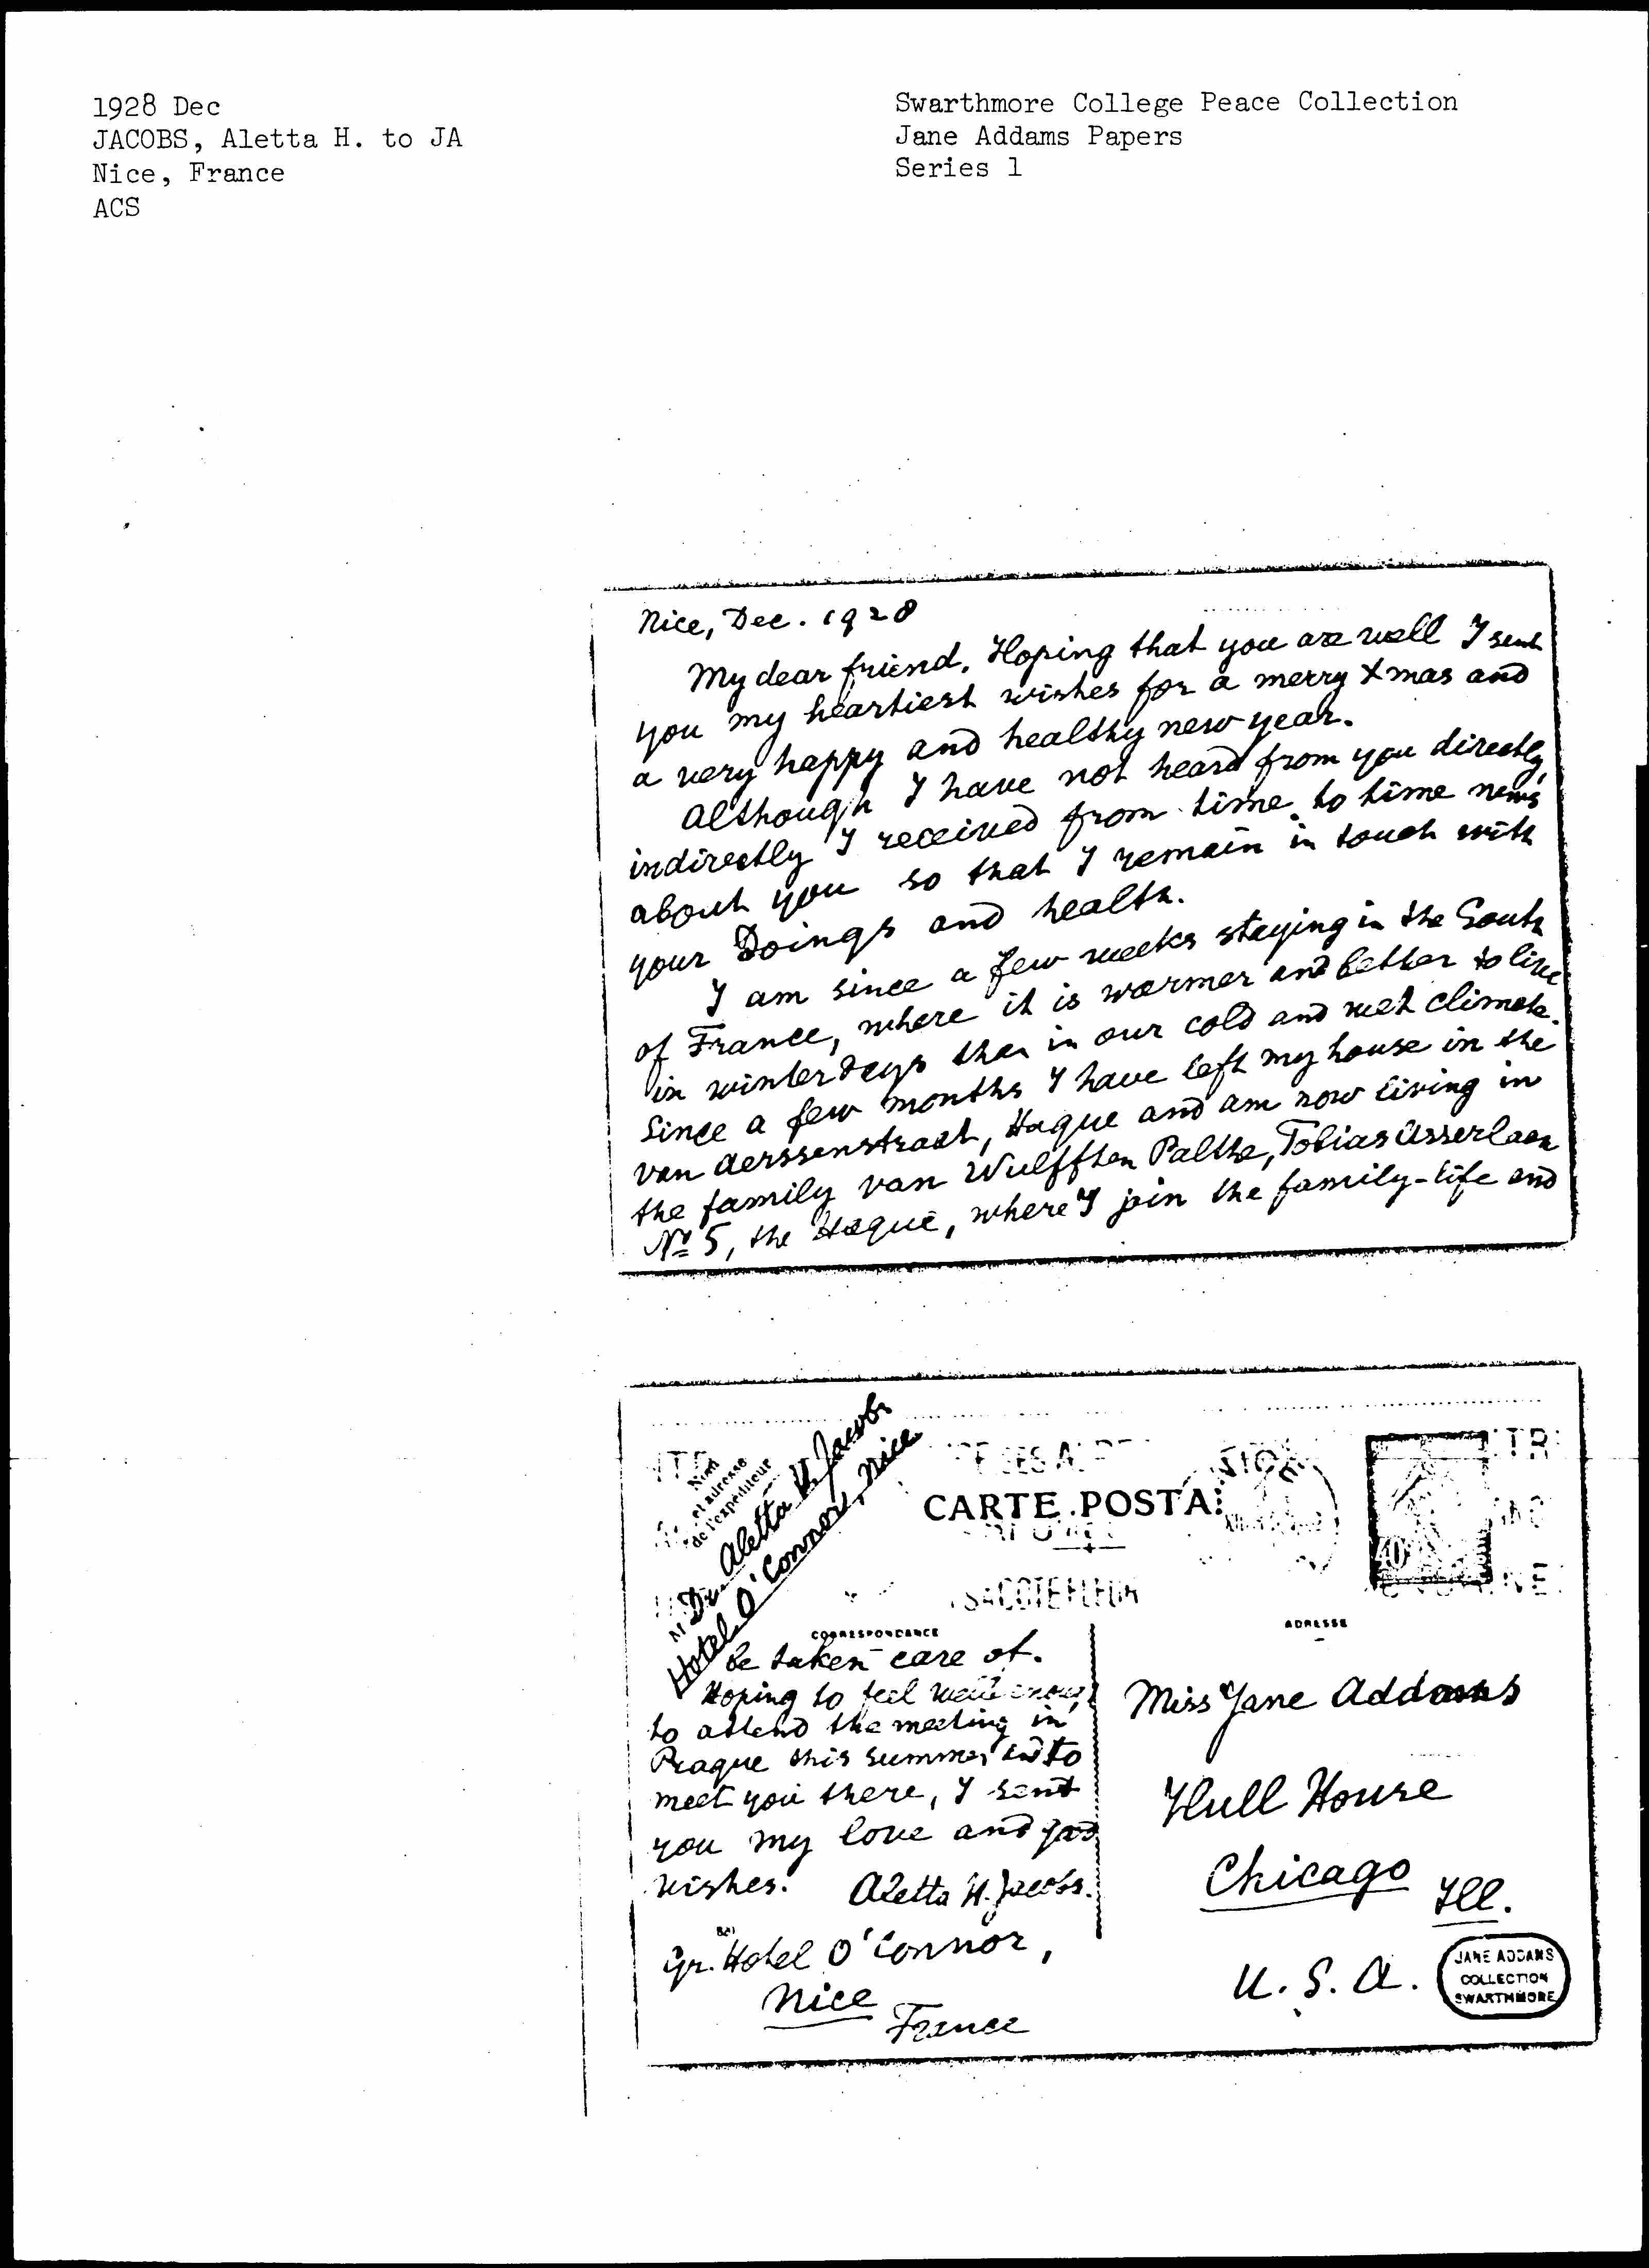 1928 Dec
JACOBS, Aletta H. to JA
Nice, France
ACS
Swarthmore College Peace Collection
Jane Addams Papers
Series 1
Nice, Dec. 1928
My dear friend. Hoping that you are well I sent
you my heartiest wishes for a merry Xmas and
a very happy and healthy new year.
Although I have not heard from you directly,
indirectly I received from time to time news
about you so that I remain in touch with
your Doings and health.
I am since a few weeks staying in the South
of France, where it is warmer and better to live
in winterdays than in our cold and wet climate.
Since a few months I have left my house in the
van Aerssenstraat, Hague and am now living in
the family van Wulfften Palthe, Tobias Asserlaan
No 5, the Hague, where I join the family-life and
Nom
et adresse
de l'expéditeur
M Dr. Aletta H. Jacobs
Hotel O'Connor, Nice
CARTE POSTA
CORRESPONDANCE
ADRESSE
40
be taken care of.
Hoping to feel well enough
to attend the meeting in
Prague this summer and to
meet you there, I sent
you my love and good
wishes. Aletta H. Jacobs.
Gr. Hotel O'Connor,
Nice
France
Miss Jane Addams
Hull House
Chicago
Ill.
U.S.A.
JANE ADDAMS
COLLECTION
SWARTHMORE